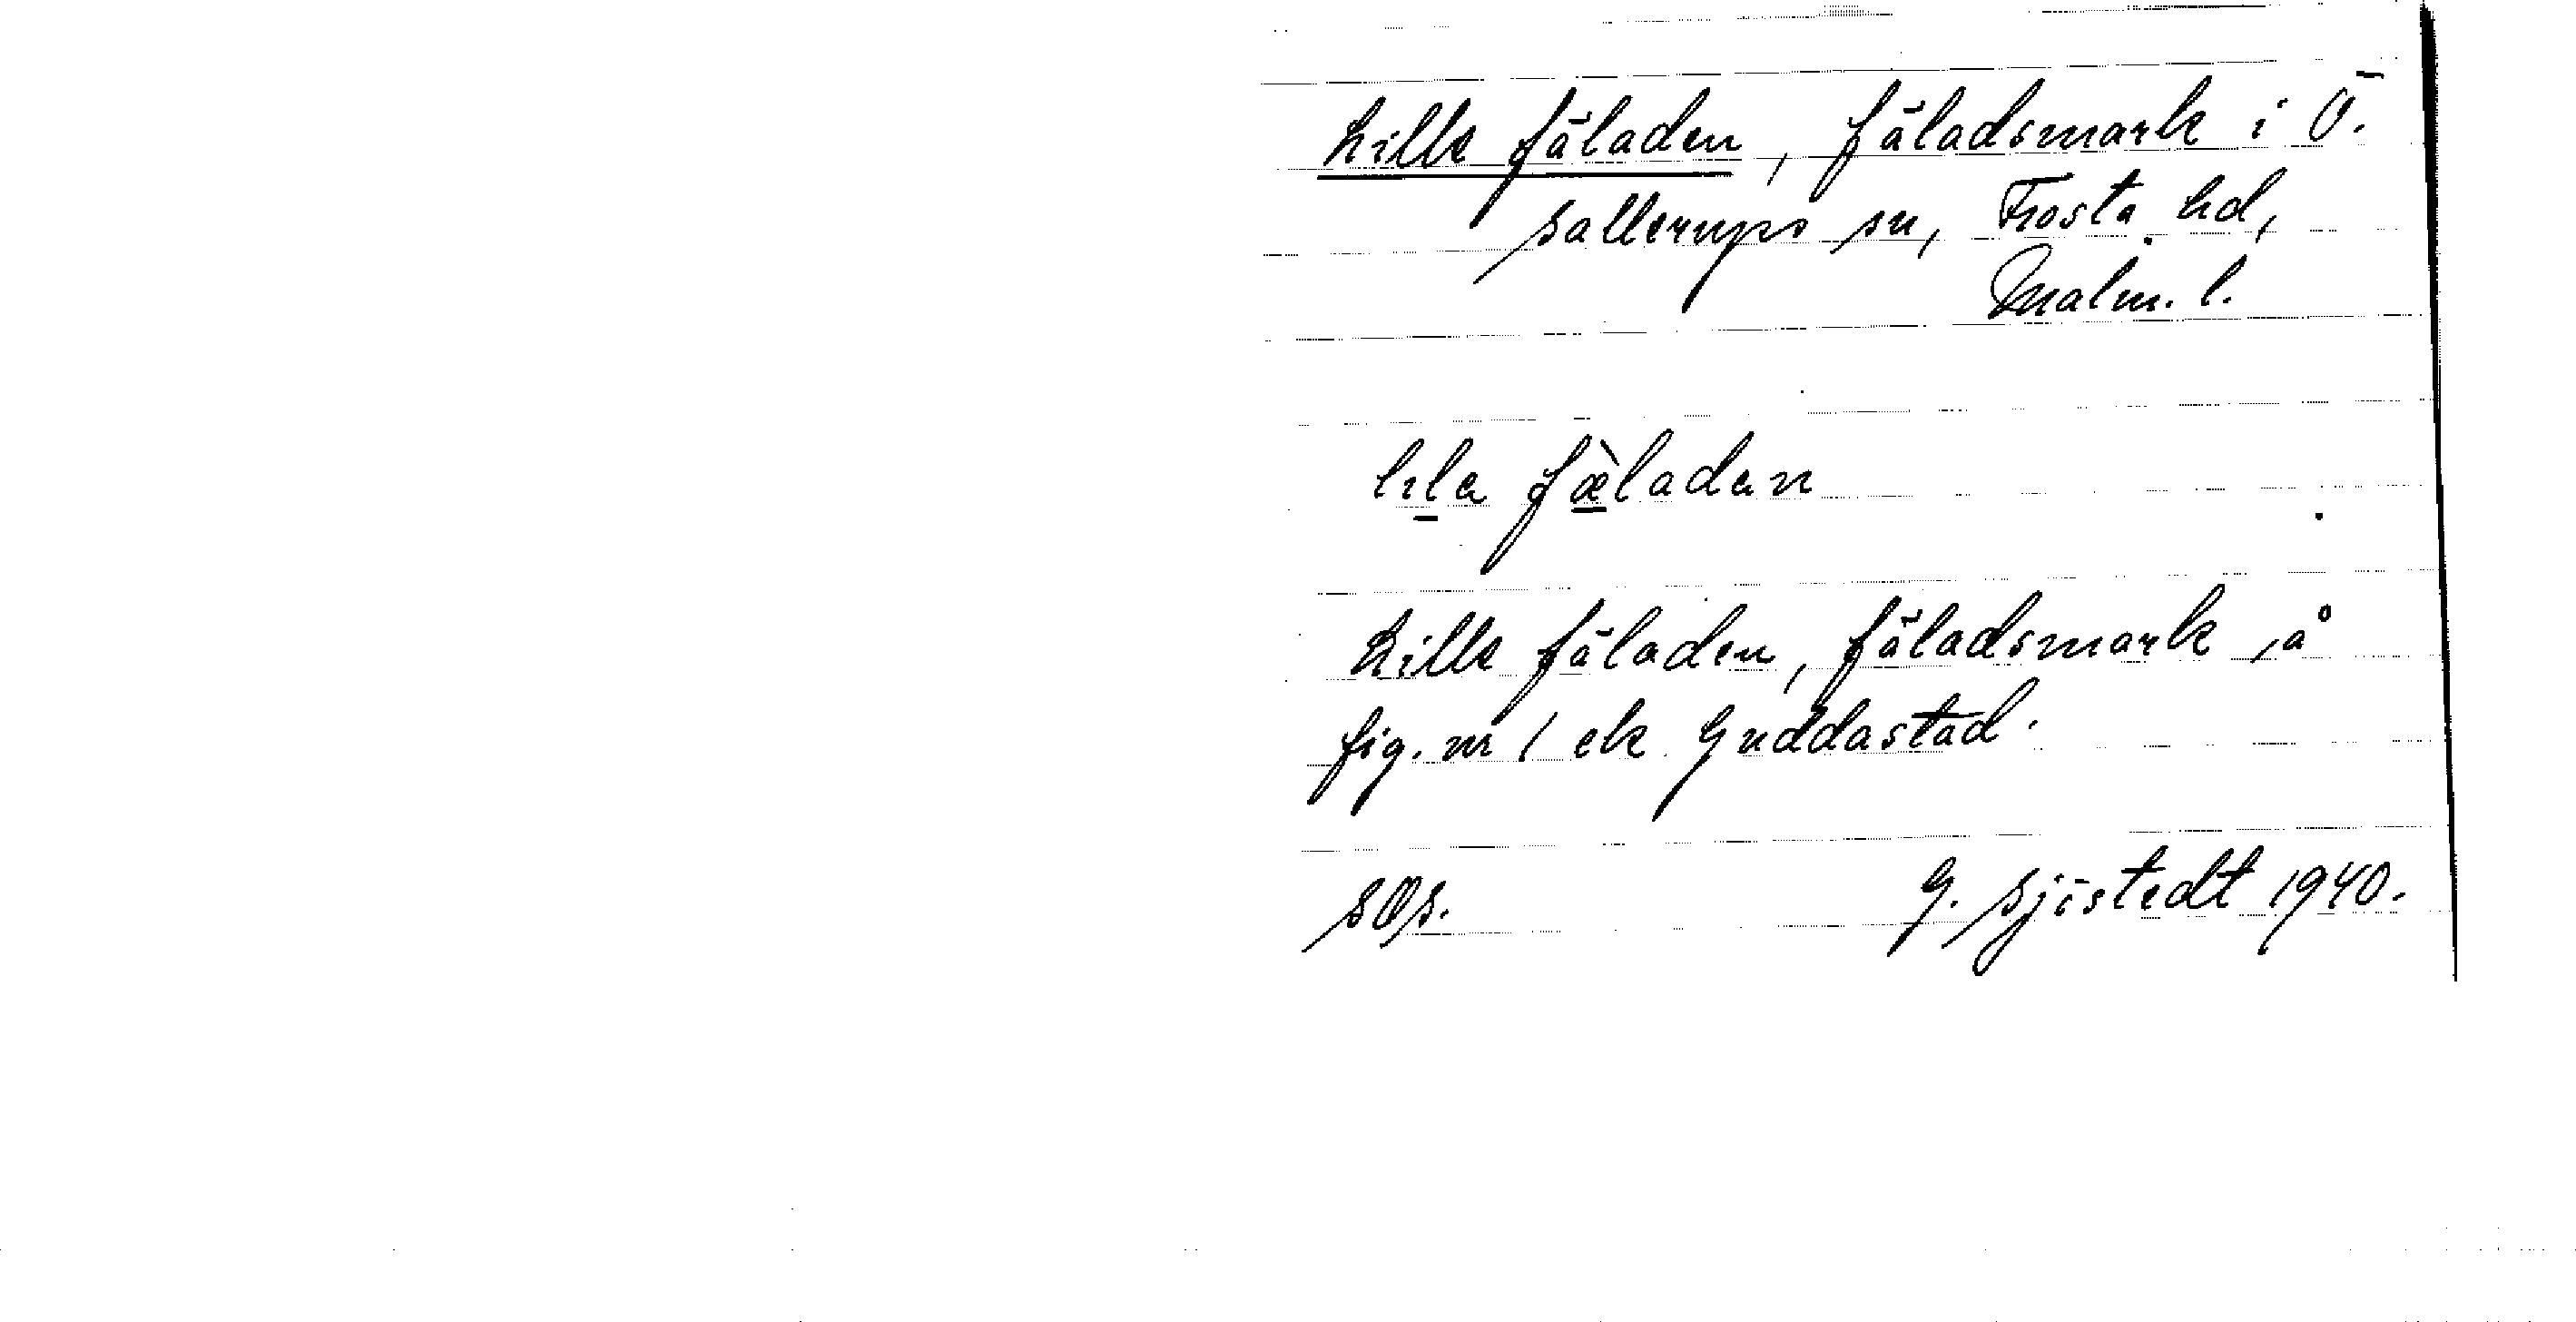 Lille fäladen, fäladsmark i Ö.
Sallerups sn, Frosta hd,
Malm. l.
lıla fæ̀ladən
Lille fäladen, fäladsmark, å
fig. nr 1 ek Guddastad.
SOS. G. Sjöstedt 1940.